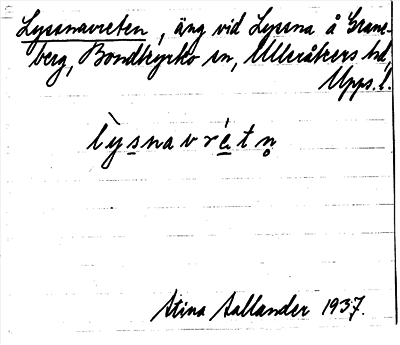 Lyssnavreten, äng vid Lyssna å Grane-
berg, Bondkyrko sn, Ulleråkers hd,
Upps. l.
lỳsnavrétn̥
Stina Sallander 1937.